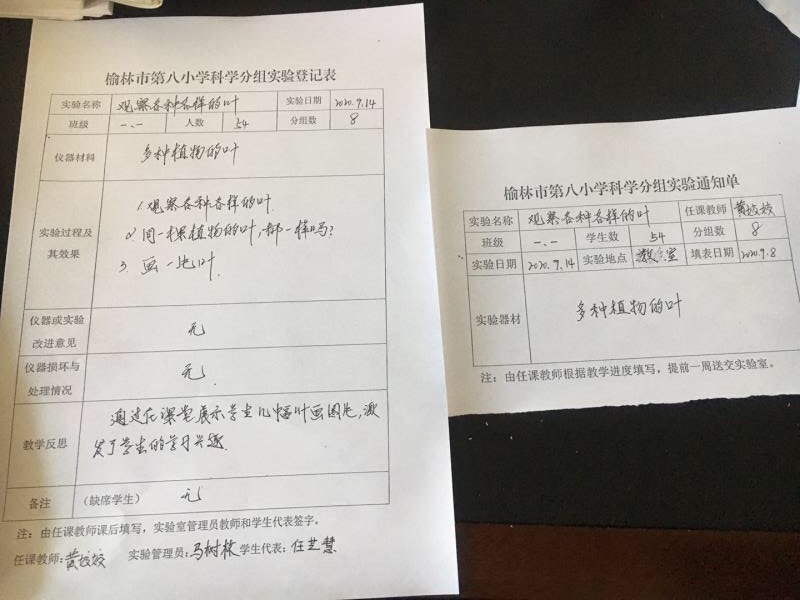 榆林市第八小学科学分组实验登记表
实验名称 观察各种各样的叶 实验日期 2020.9.14
班级 一.一 人数 54 分组数 8
仪器材料 多种植物的叶
实验过程及其效果
1. 观察各种各样的叶.
2. 同一棵植物的叶,都一样吗?
3. 画一片叶.
仪器或实验改进意见 无
仪器损坏与处理情况 无
教学反思 通过在课堂展示学生几幅叶画图片,激
发了学生的学习兴趣.
备注 (缺席学生) 无
注:由任课教师课后填写,实验室管理员教师和学生代表签字。
任课教师:黄姣姣 实验管理员:马树枚 学生代表:任芝慧
榆林市第八小学科学分组实验通知单
实验名称 观察各种各样的叶 任课教师 黄姣姣
班级 一.一 学生数 54 分组数 8
实验日期 2020.9.14 实验地点 教室 填表日期 2020.9.8
实验器材 多种植物的叶
注:由任课教师根据教学进度填写,提前一周送交实验室。